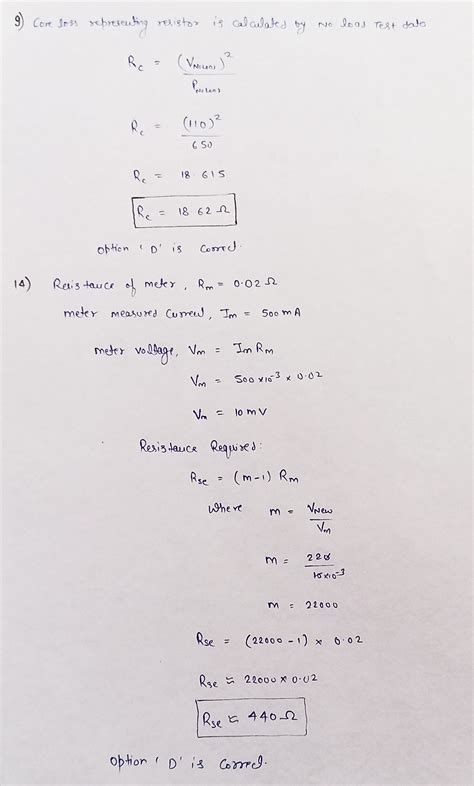 9) Core loss representing resistor is calculated by No load Test data
Rc = (VNoLoad)² / PNoLoad
Rc = (110)² / 650
Rc = 18.615
Rc = 18.62 Ω
option 'D' is correct.
14) Resistance of meter, Rm = 0.02 Ω
meter measured current, Im = 500 mA
meter voltage, Vm = Im Rm
Vm = 500×10⁻³ × 0.02
Vm = 10 mV
Resistance Required:
Rse = (m-1) Rm
Where m = VNew / Vm
m = 220 / 10×10⁻³
m = 22000
Rse = (22000 - 1) × 0.02
Rse ≈ 22000 × 0.02
Rse ≈ 440 Ω
option 'D' is correct.